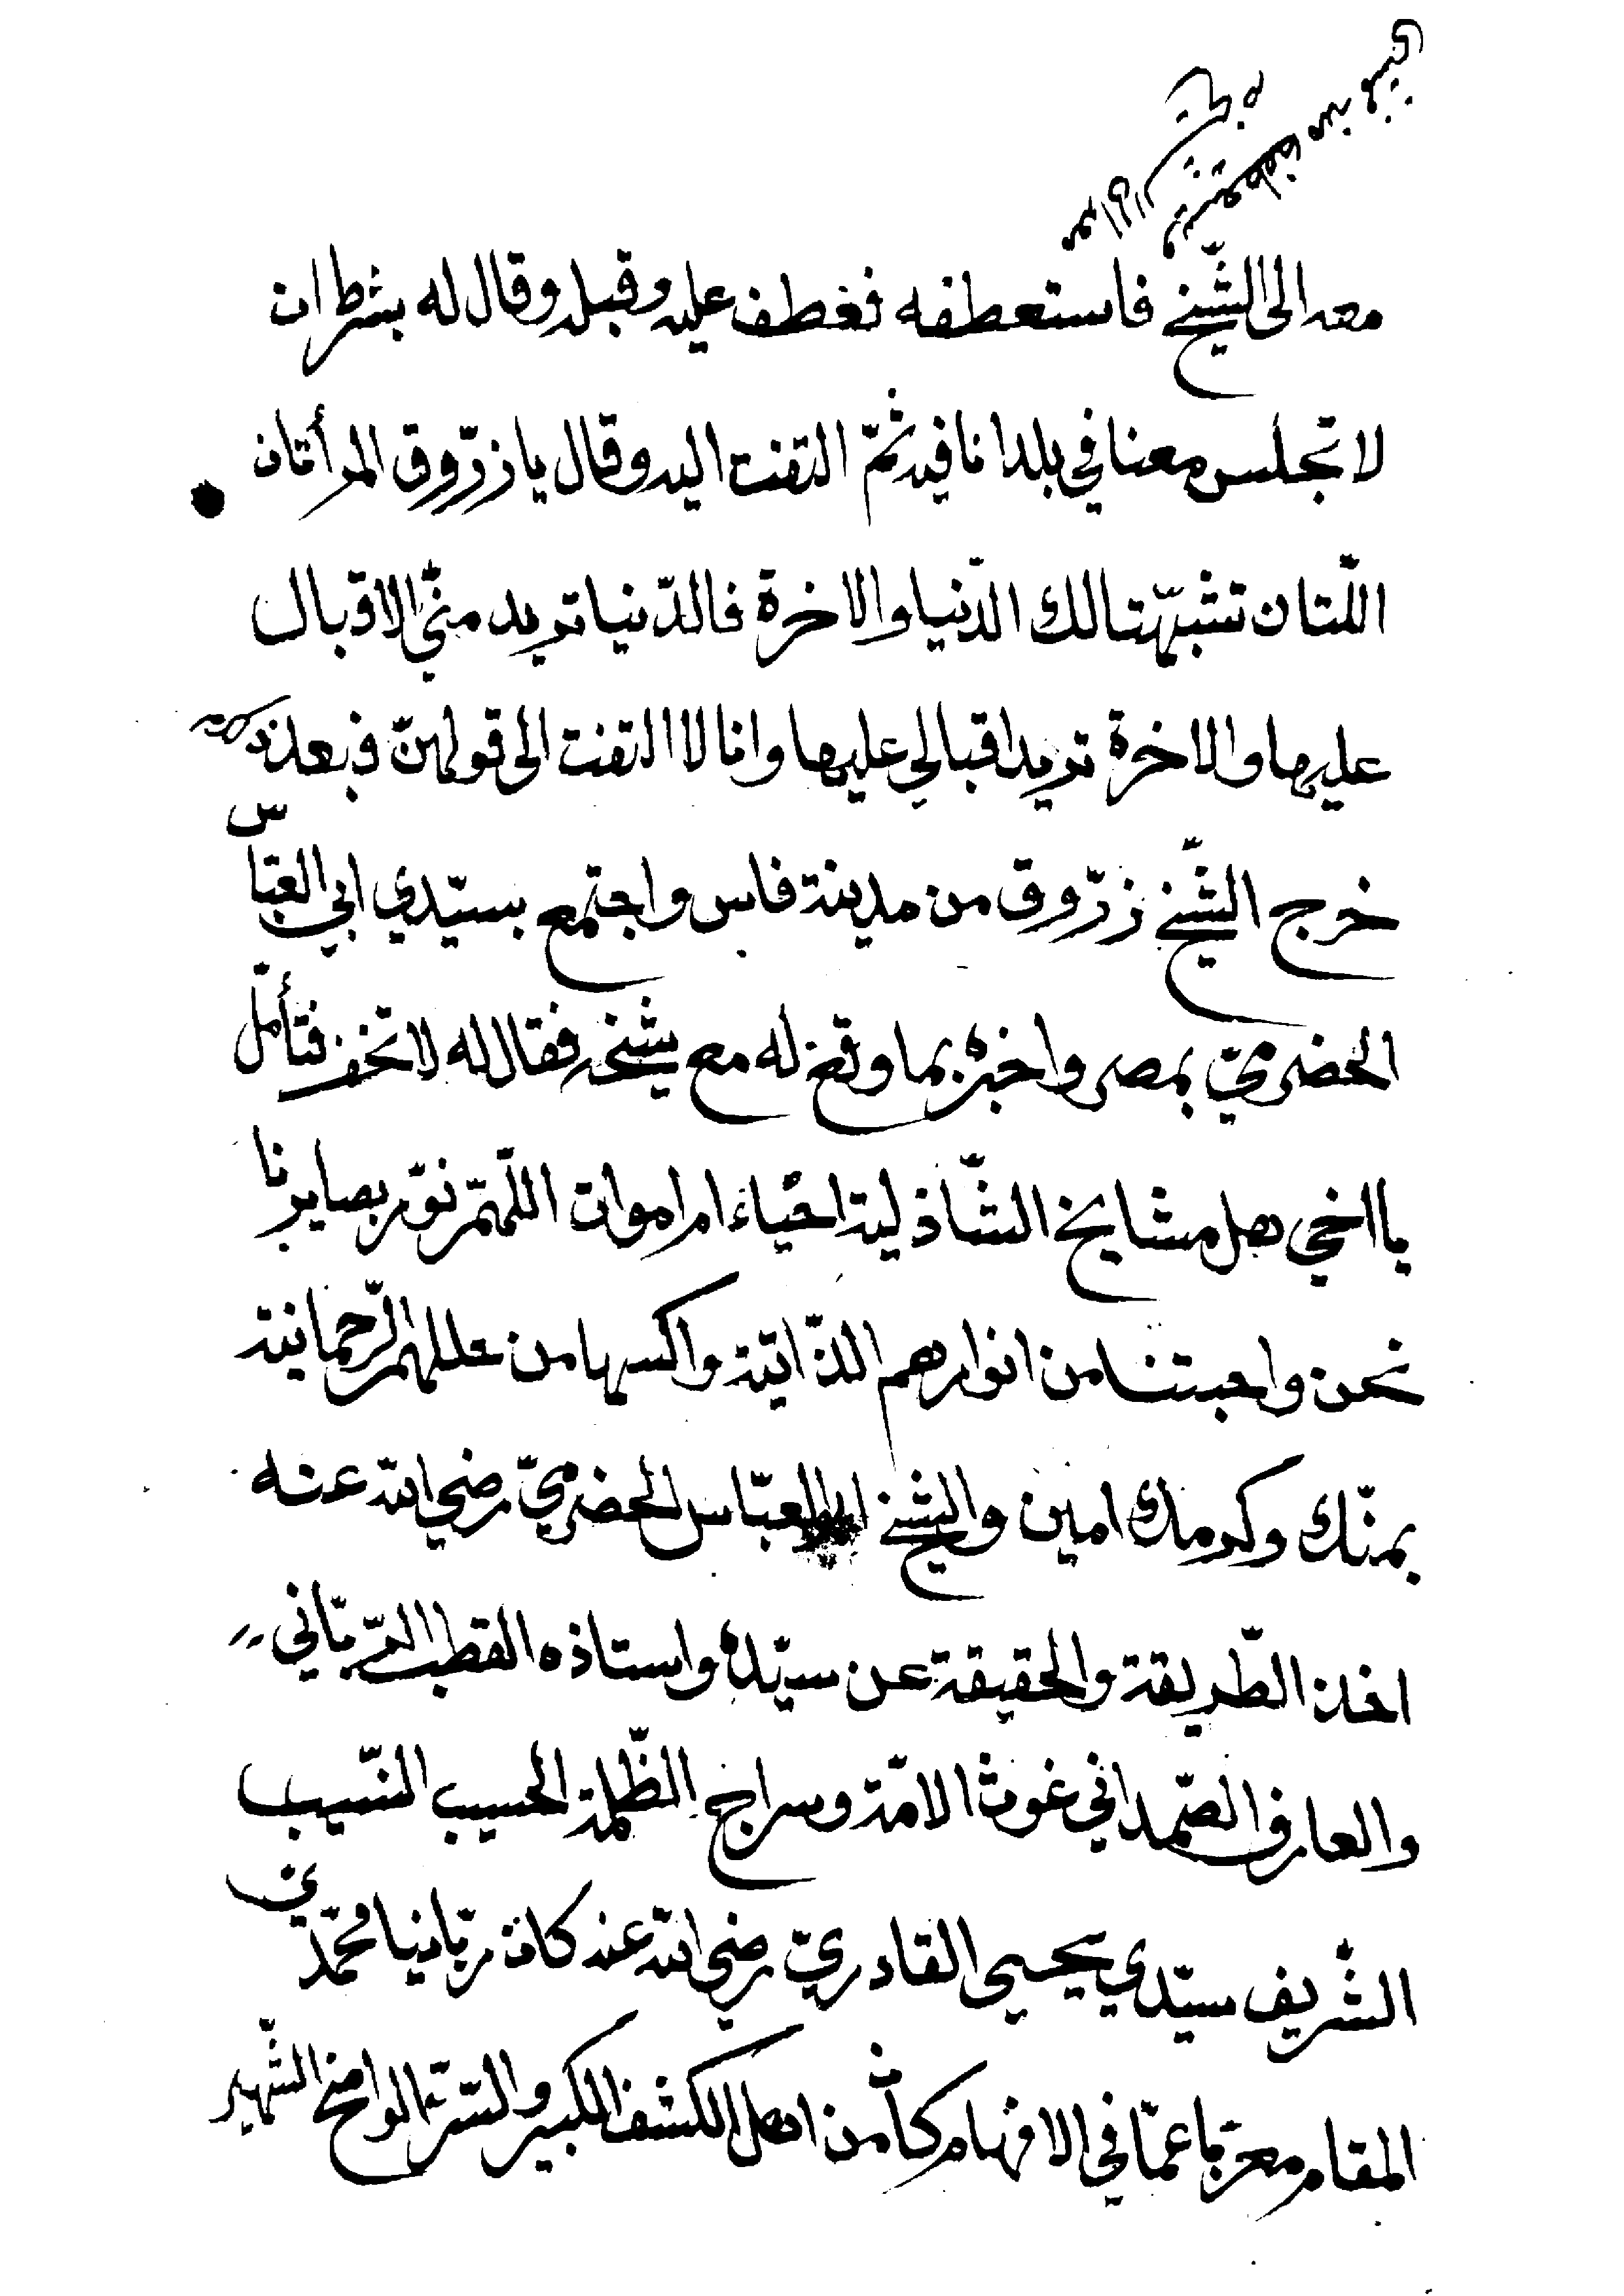 معه الى الشّيخ فاستعطفه فعطف عليه وقبله وقال له بشرط ان
لا تجلس معنا في بلد انا فيه ثمّ التفت اليه وقال يا زرّوق المرأتان
اللّتان تشبّهتا لك الدّنيا والاخرة فالدّنيا تريد منّي الاقبال
عليها والاخرة تريد اقبالي عليها وانا لا التفت الى قولهنّ فبعد ذلك
خرج الشّيخ زرّوق من مدينة فاس واجتمع بسيّدي ابي العبّاس
الحضرميّ بمصر واخبره بما وقع له مع شيخه فقال له لا تخف فتأمّل
يا اخي هل مشايخ الشّاذلية احياء ام اموات اللّهمّ نوّر بصايرنا
نحن واحبتنا من انوارهم الذّاتيّة واكسها من حللهم الرّحمانيّة
بمنّك وكرمك امين والشّيخ ابو العبّاس الحضرميّ رضي الله عنه
اخذ الطّريقة والحقيقة عن سيّده واستاذه القطب الرّبّاني
والعارف الصّمداني غوث الامّة وسراج الظّلمة الحسيب النّسيب
الشّريف سيّدي يحيى القادريّ رضي الله عنه كان ربّانيا محمّديّ
المقام معربا عمّا في الافهام كان من اهل الكشف الكبير والسّرّ الواضح الشّهير